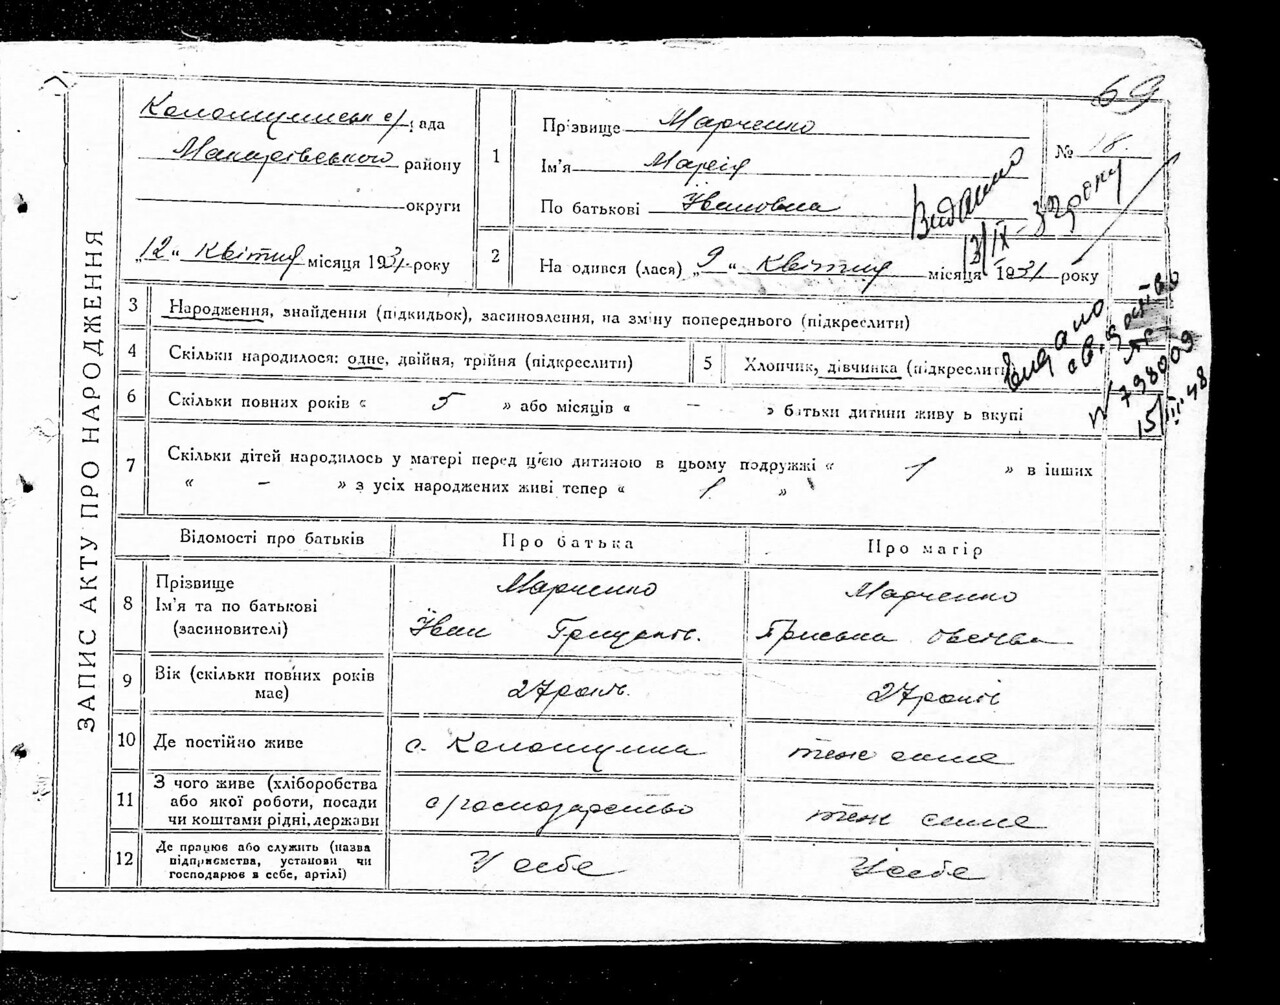 69
ЗАПИС АКТУ ПРО НАРОДЖЕННЯ
с/рада
Макарівського району
округи
"12" Квітня місяця 1931 року
1
Прізвище Марченко
Ім'я Марія
По батькові Івановна
№ 18.
Видано
2
На одився (лася) „9" Квітня місяця 1931 року
3
Народження, знайдення (підкидьок), засиновлення, на зміну попереднього (підкреслити)
4
Скільки народилося: одне, двійня, трійня (підкреслити)
5
Хлопчик, дівчинка (підкреслити)
Видано
N 798009
15/III 48
6
Скільки повних років « 5 » або місяців « – » батьки дитини живу ь вкупі
7
Скільки дітей народилось у матері перед цією дитиною в цьому подружжі « 1 » в інших
« – » з усіх народжених живі тепер « 1 »
Відомості про батьків
Про батька
Про матір
8
Прізвище
Ім'я та по батькові
(засиновителі)
Марченко
Іван
Марченко
9
Вік (скільки повних років
має)
27 років.
27 років
10
Де постійно живе
с.
теж саме
11
З чого живе (хліборобства
або якої роботи, посади
чи коштами рідні, держави
с/господарство
теж саме
12
Де працює або служить (назва
підприємства, установи чи
господарює в себе, артілі)
У себе
У себе